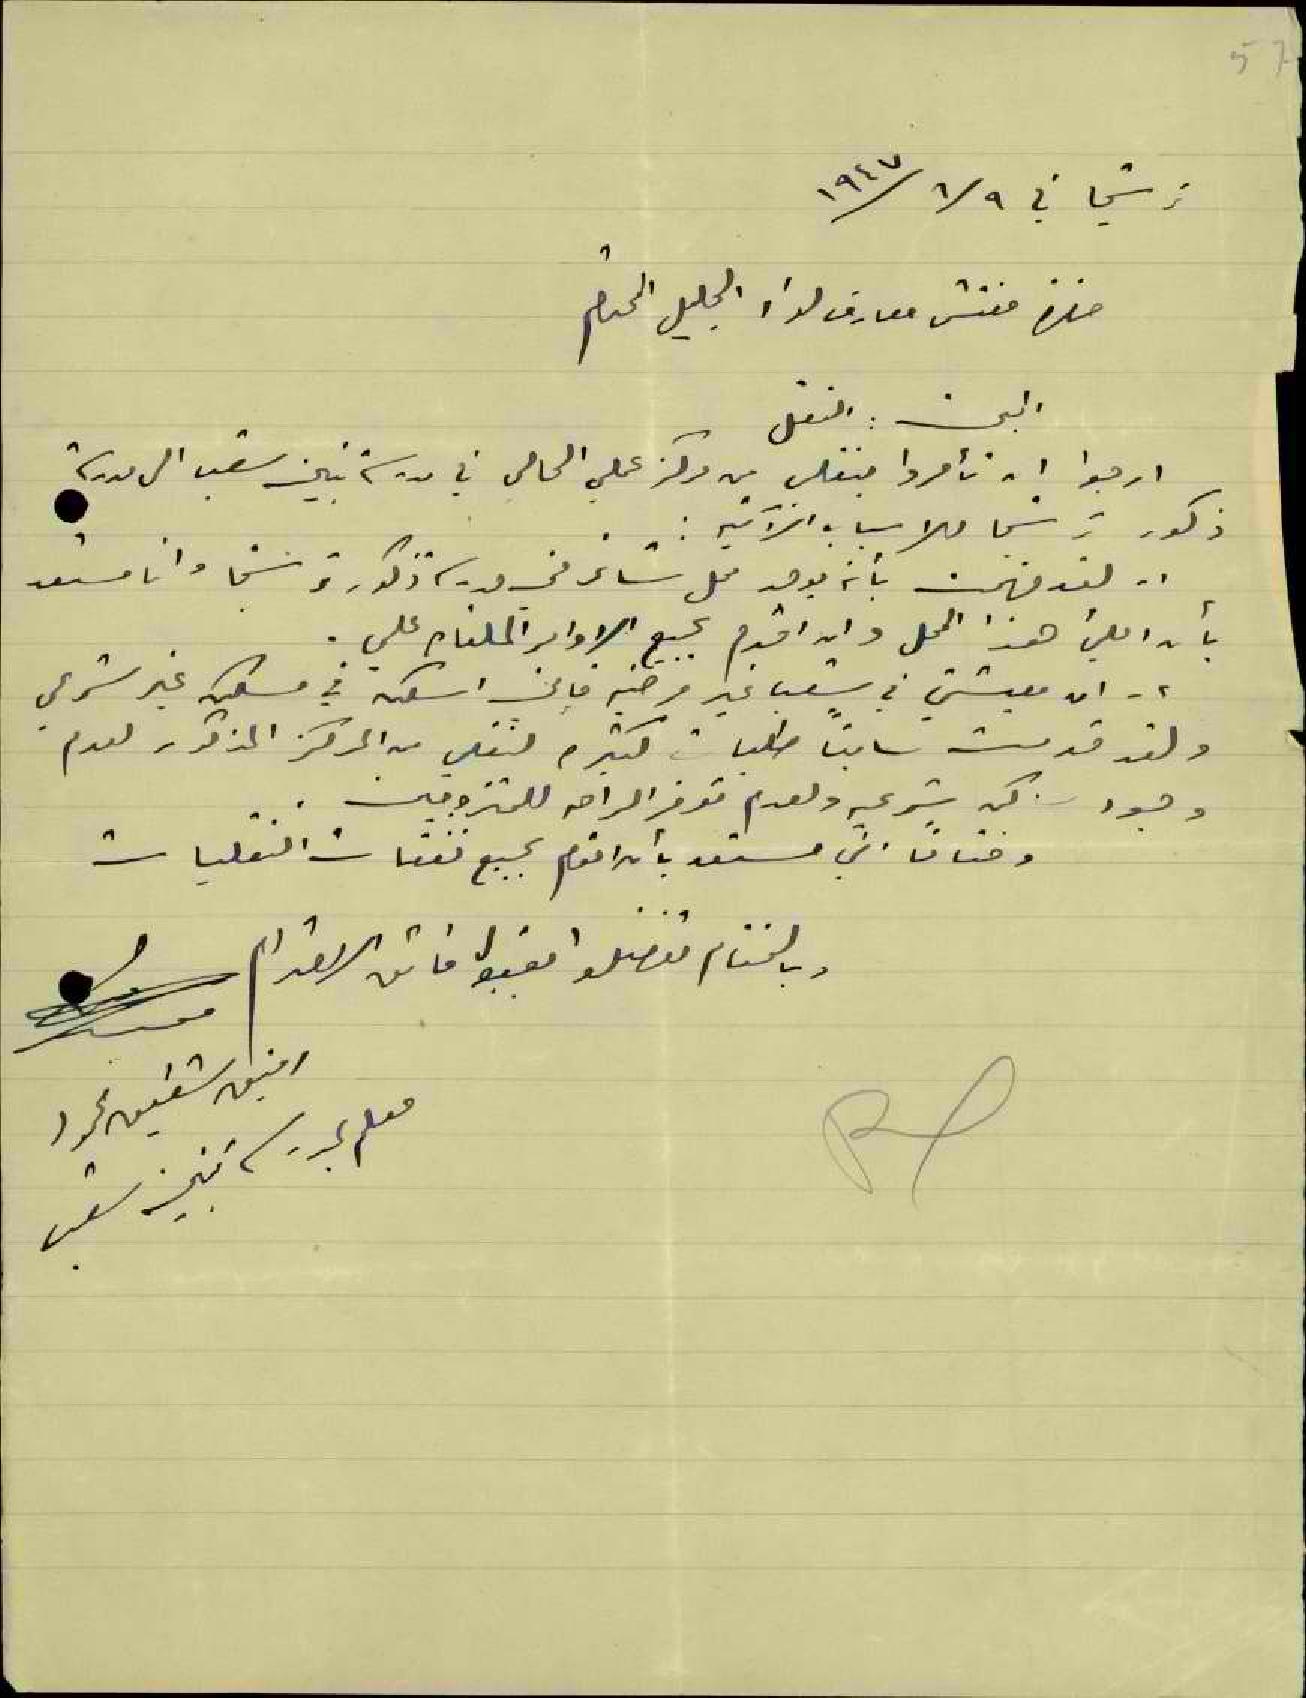 57
ترشيحا في ٩/٦/١٩٤٧
حضرة مفتش معارف لواء الجليل المحترم
البحث : النقل
ارجوا ان تأمروا بنقلي من مركز عملي الحالي في مدرسة بنين شعب الى مدرسة
ذكور ترشيحا للاسباب الآتية :
١- لقد فهمت بأنه يوجد محل شاغر في مدرسة ذكور ترشيحا وانا مستعد
بأن املئ هذا المحل وان اقوم بجميع الاوامر الملقاه علي .
٢- ان معيشتي في شعب غير مرضيه فإني اسكن في مسكن غير شرعي
ولقد قدمت سابقاً طلبات كثيره لنقلي من المركز المذكور لعدم
وجود سكن شرعيه ولعدم توفر الراحه للمتزوجين .
وختاماً انني مستعد بأن اقوم بجميع نفقات التنقليات
وبالختام تفضلوا بقبول فائق الاحترام
شفيق
معلم بمدرسة بنين شعب